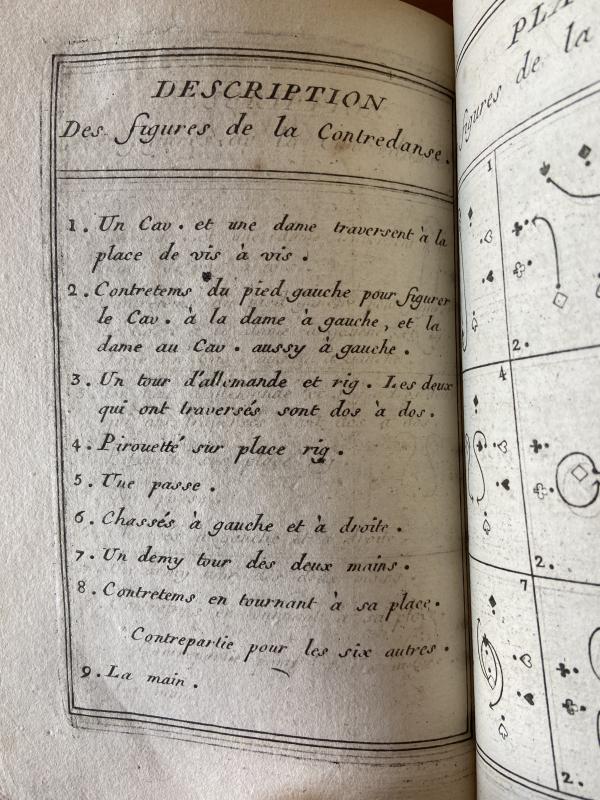 DESCRIPTION
Des figures de la Contredanse.
1. Un Cav. et une dame traversent à la
place de vis à vis.
2. Contretems du pied gauche pour figurer
le Cav. à la dame à gauche, et la
dame au Cav. aussy à gauche.
3. Un tour d'allemande et rig. Les deux
qui ont traversés sont dos à dos.
4. Pirouetté sur place rig.
5. Une passe.
6. Chassés à gauche et à droite.
7. Un demy tour des deux mains.
8. Contretems en tournant à sa place.
Contrepartie pour les six autres.
9. La main.
PLA
figures de la
1
2.
4
2.
7
2.